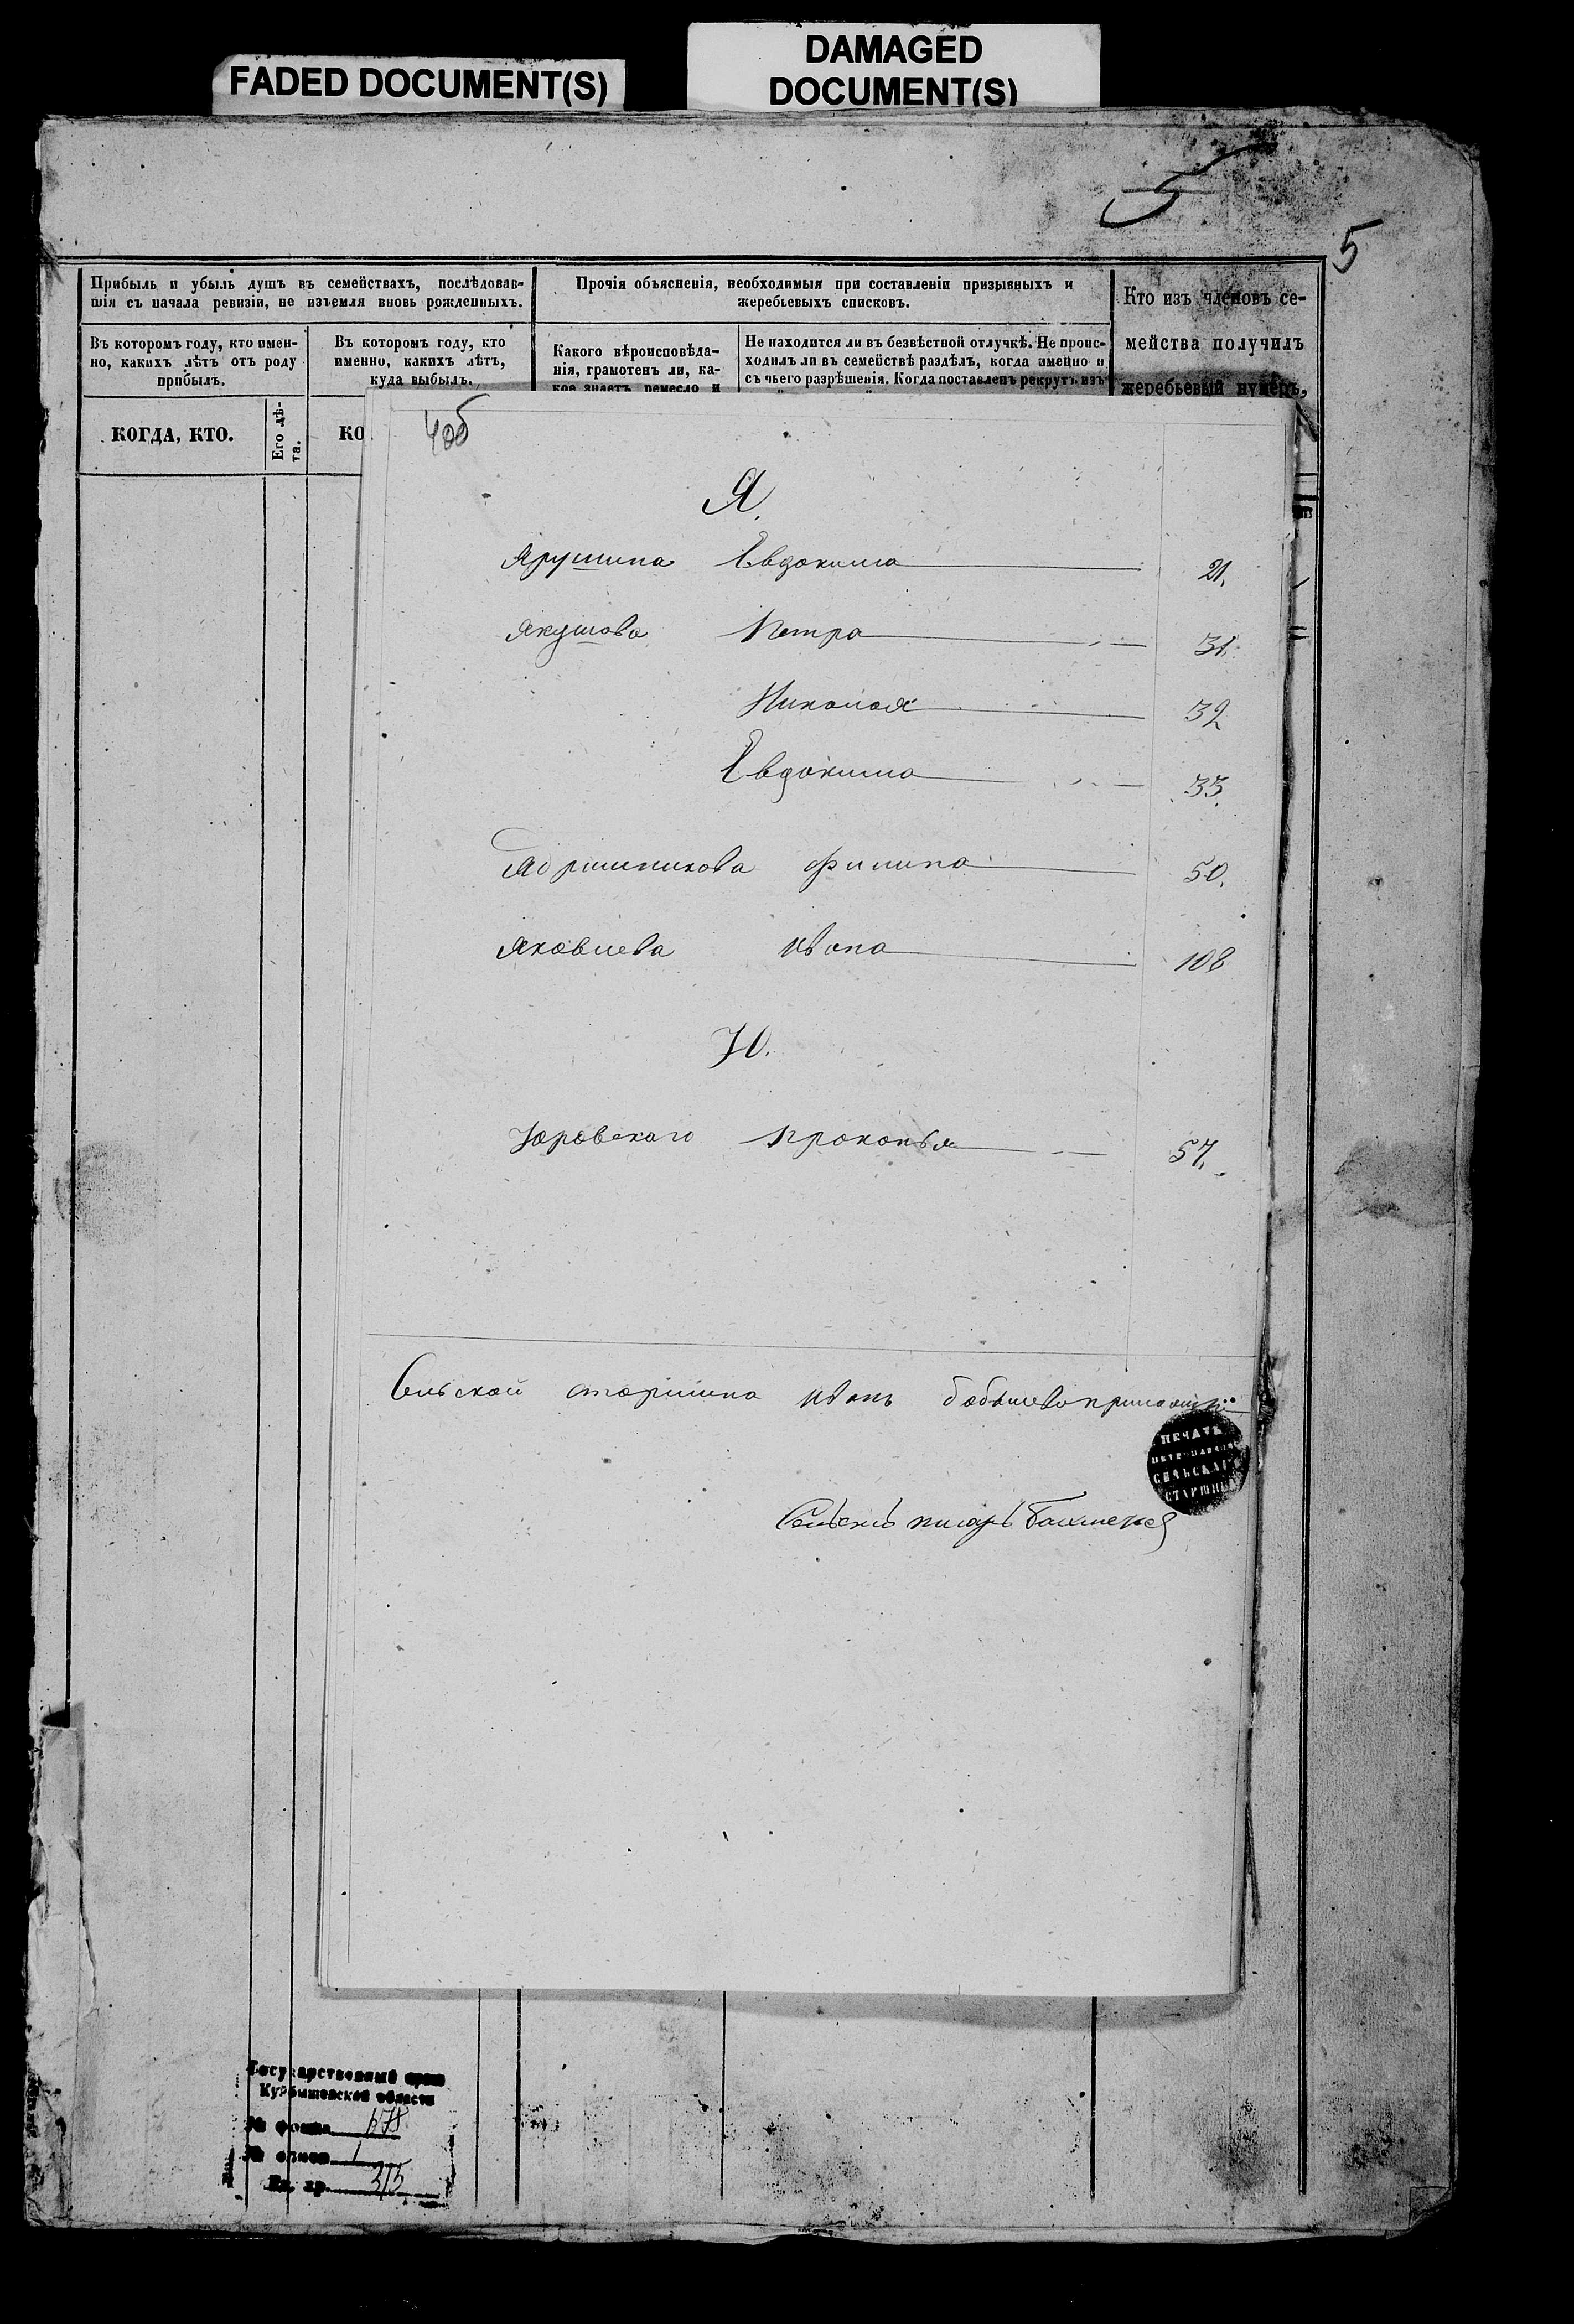 FADED DOCUMENT(S)
DAMAGED
DOCUMENT(S)
5
5
Прибыль и убыль душъ въ семействахъ, послѣдовав-
шія съ начала ревизіи, не изъемля вновь рожденныхъ.
Прочія объясненія, необходимыя при составленіи призывныхъ и
жеребьевыхъ списковъ.
Кто изъ членовъ се-
мейства получилъ
жеребьевый нумеръ,
Въ которомъ году, кто имен-
но, какихъ лѣтъ отъ роду
прибылъ.
Въ которомъ году, кто
именно, какихъ лѣтъ,
куда выбылъ.
Какого вѣроисповѣда-
нія, грамотенъ ли, ка-
кое знаетъ ремесло и
Не находится ли въ безвѣстной отлучкѣ. Не проис-
ходилъ ли въ семействѣ раздѣлъ, когда именно и
съ чьего разрѣшенія. Когда поставленъ рекрутъ изъ
КОГДА, КТО.
Его лѣ-
та.
КО
4об
Я.
Ярушина Евдокима 21.
Якушова Петра 31.
Николая 32
Евдокима 33.
Филипа 50.
Яковлева Ивана 108
Ю.
Юровскаго Прокопья 57.
Сельской старшина Иванъ
ПЕЧАТЬ
СЕЛЬСКАГО
СТАРШИНЫ
Сельскій писарь
Государственный архив
Куйбышевской области
№ фонда
№ описи 1
Ед. хр. 315